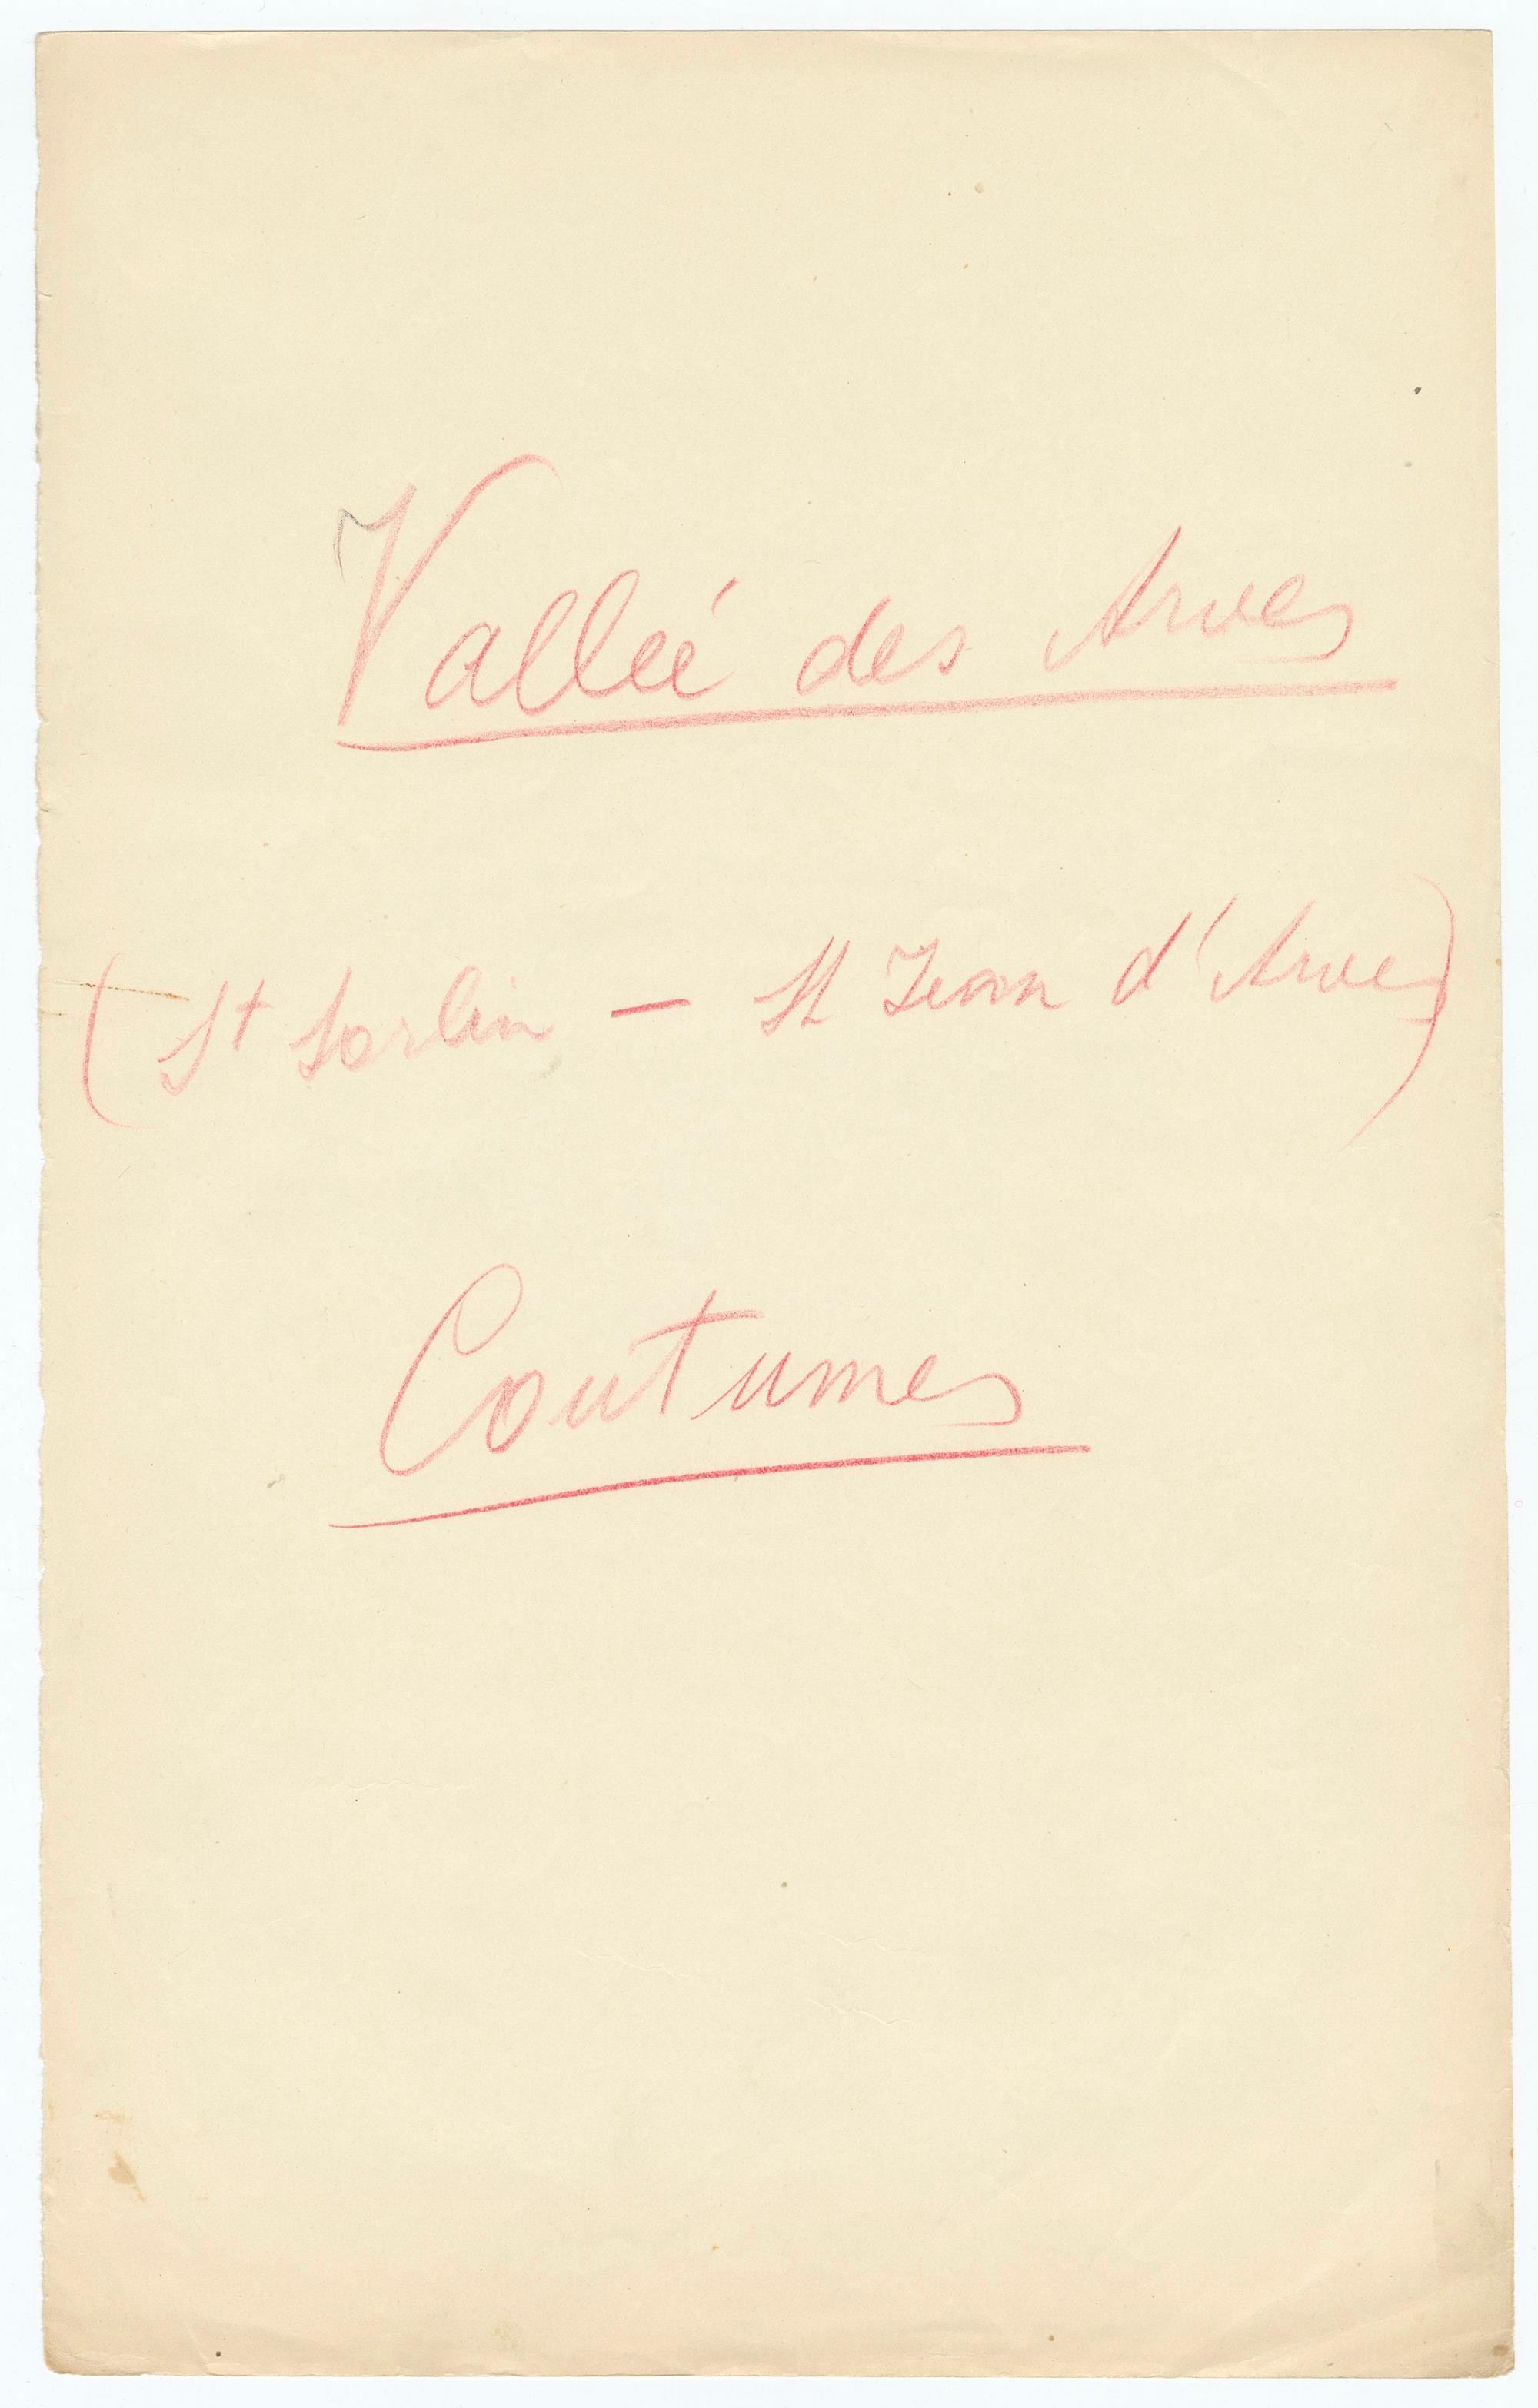 Vallée des Arves
(St Sorlin - St Jean d'Arves)
Coutumes